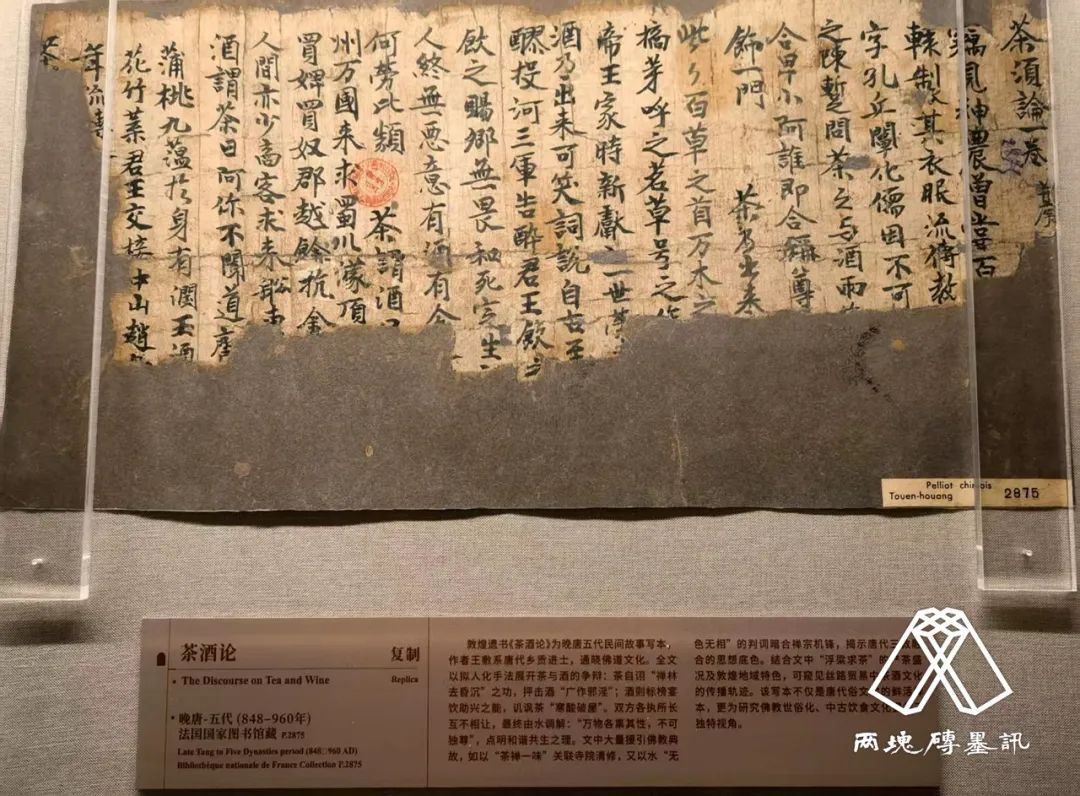 茶須論一卷 并序
神農曾嘗百
轅制其衣服流傳教
字孔丘闡化儒因不可
之陳暫問茶之与酒兩
合早小阿誰即合稱尊
飾一門 茶乃出来
此々百草之首万木之
摘芽呼之茗草号之作
帝王家時新獻一世
酒乃出来可笑詞說自古至
醪投河三軍告醉君王飲之
飲之賜卿無畏和死定生
人終無惡意有酒有令
何勞比類 茶謂酒
州万國来求蜀川濛頂
買婢買奴郡越餘杭金
人間亦少商客求来舩車
酒謂茶曰阿你不聞道
蒲桃九蕴於身有潤玉酒
花竹葉君王交接中山趙
年流傳
茶
Pelliot chinois
Touen-houang
2875
茶酒论
复制
The Discourse on Tea and Wine
Replica
晚唐-五代（848-960年）
法国国家图书馆藏 P.2875
Late Tang to Five Dynasties period (848□960 AD)
Bibliothèque nationale de France Collection P.2875
敦煌遗书《茶酒论》为晚唐五代民间故事写本，
作者王敷系唐代乡贡进士，通晓佛道文化。全文
以拟人化手法展开茶与酒的争辩：茶自诩“禅林
去昏沉”之功，抨击酒“广作邪淫”；酒则标榜宴
饮助兴之能，讥讽茶“寒酸破屋”。双方各执所长
互不相让，最终由水调解：“万物各禀其性，不可
独尊”，点明和谐共生之理。文中大量援引佛教典
故，如以“茶禅一味”关联寺院清修，又以水“无
色无相”的判词暗合禅宗机锋，揭示唐代三教融
合的思想底色。结合文中“浮梁求茶”的茶盛
况及敦煌地域特色，可窥见丝路贸易中茶酒文化
的传播轨迹。该写本不仅是唐代俗文的鲜活
本，更为研究佛教世俗化、中古饮食文化
独特视角。
两塊磚墨訊